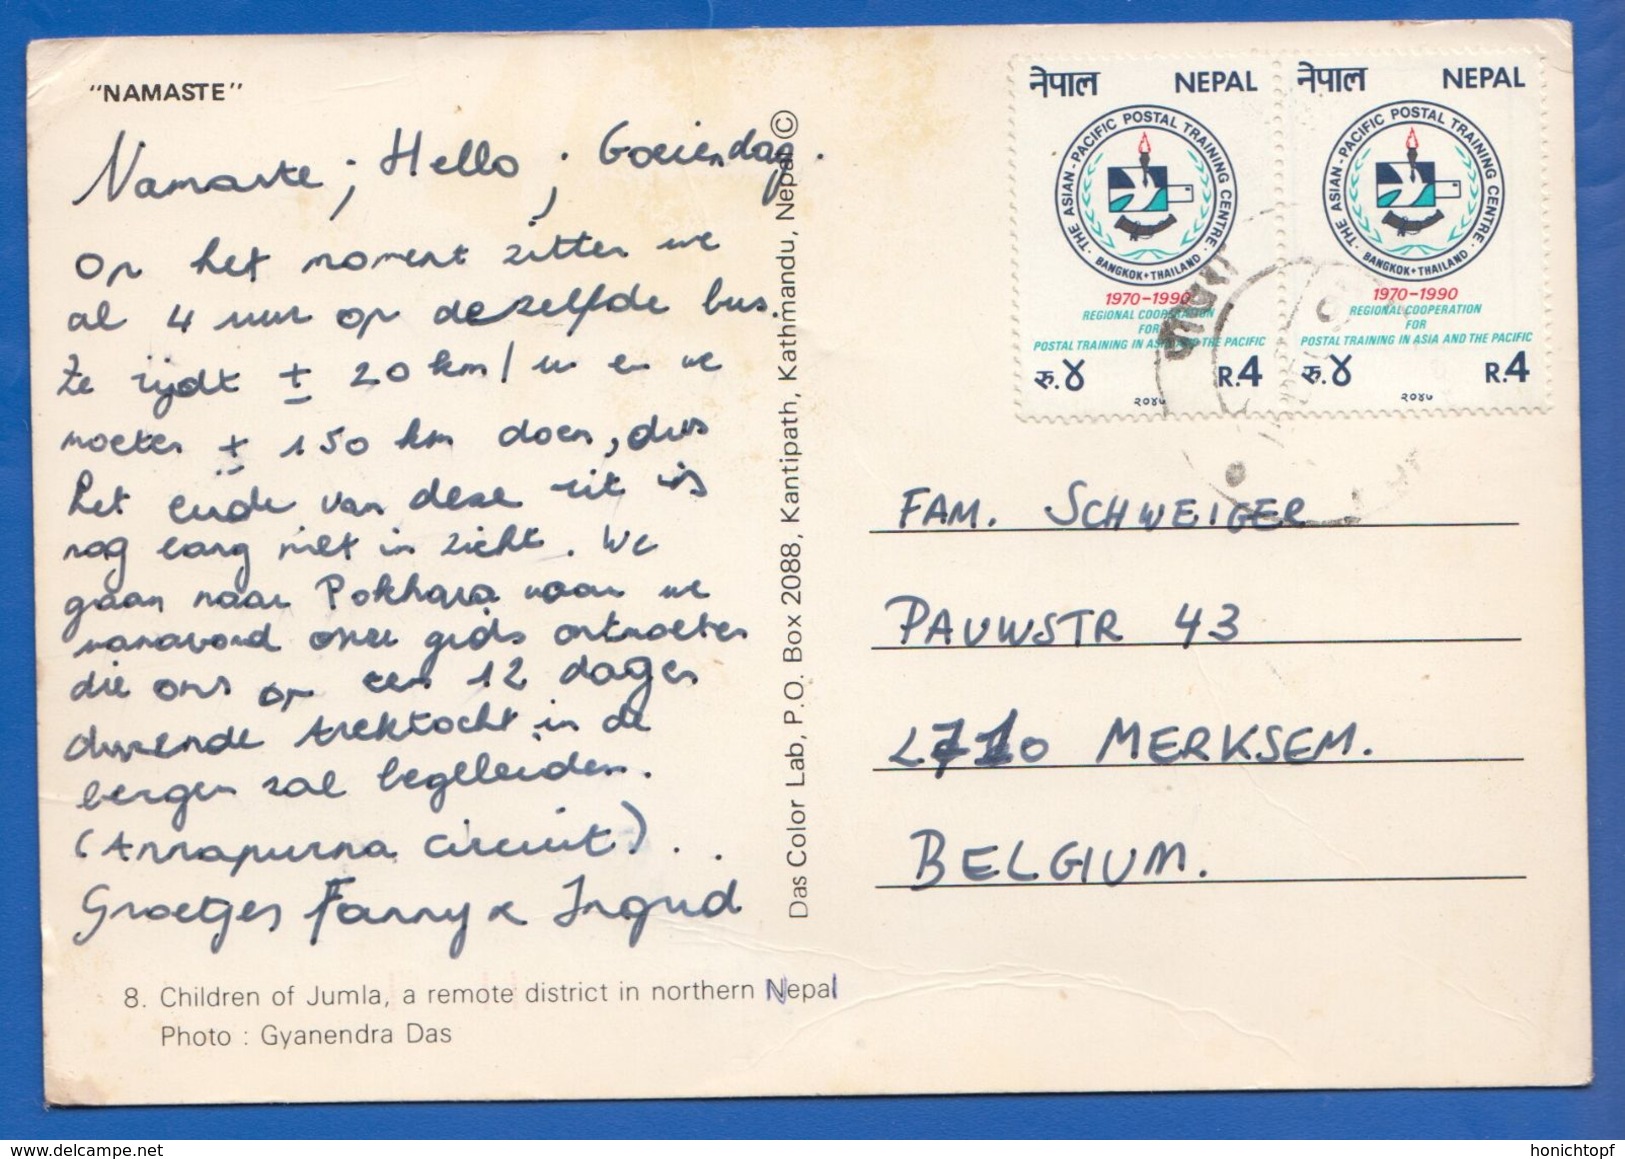 "NAMASTE"
Namaste ; Hello ; Goeiendag.
Op het moment zitten we
al 4 uur op dezelfde bus.
Ze rijdt ± 20 km/u en we
moeten ± 150 km doen, dus
het einde van deze rit is
nog lang niet in zicht. We
gaan naar Pokhara waar we
vanavond onze gids ontmoeten
die ons op een 12 dagen
durende trektocht in de
bergen zal begeleiden.
(Annapurna circuit)...
Groetjes Fanny & Ingrid
8. Children of Jumla, a remote district in northern Nepal
Photo : Gyanendra Das
Das Color Lab, P.O. Box 2088, Kantipath, Kathmandu, Nepal ©
नेपाल NEPAL
THE ASIAN-PACIFIC POSTAL TRAINING CENTRE
BANGKOK THAILAND
1970-1990
REGIONAL COOPERATION
FOR
POSTAL TRAINING IN ASIA AND THE PACIFIC
रु.४ R.4
२०४७
नेपाल NEPAL
THE ASIAN-PACIFIC POSTAL TRAINING CENTRE
BANGKOK THAILAND
1970-1990
REGIONAL COOPERATION
FOR
POSTAL TRAINING IN ASIA AND THE PACIFIC
रु.४ R.4
२०४७
FAM. SCHWEIGER
PAUWSTR 43
MERKSEM.
BELGIUM.
honichtopf